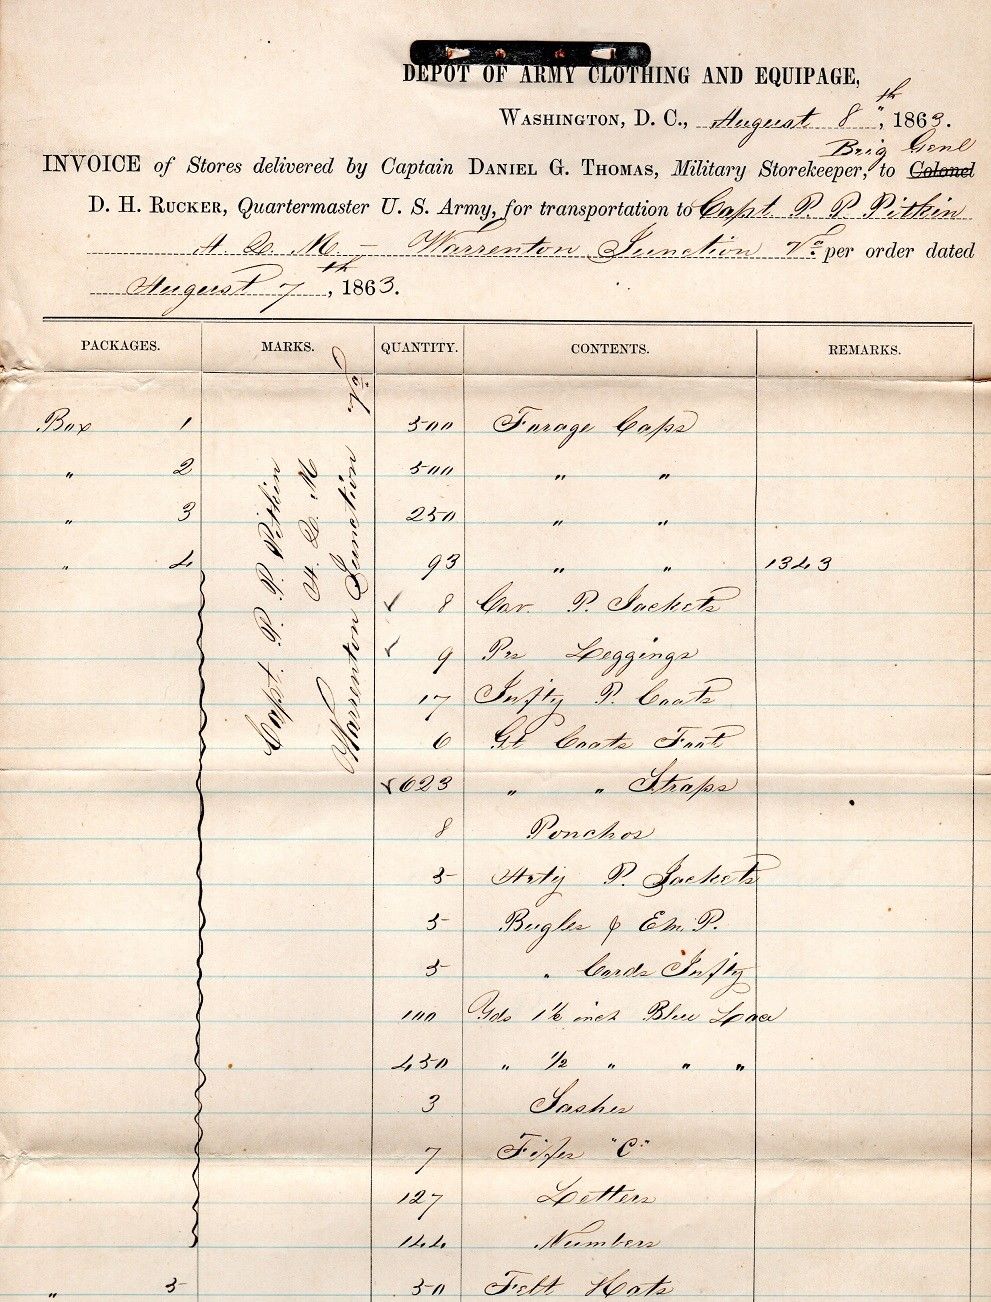 DEPOT OF ARMY CLOTHING AND EQUIPAGE,
WASHINGTON, D. C., August 8th, 1863.
Brig Genl
INVOICE of Stores delivered by Captain DANIEL G. THOMAS, Military Storekeeper, to Colonel
D. H. RUCKER, Quartermaster U. S. Army, for transportation to Capt. P. P. Pitkin
A. Q. M. – Warrenton Junction Va. per order dated
August 7th, 1863.
PACKAGES. MARKS. QUANTITY. CONTENTS. REMARKS.
Capt. P. P. Pitkin
A. Q. M
Warrenton Junction Va
Box 1 500 Forage Caps
" 2 500 " "
" 3 250 " "
" 4 93 " " 1343
8 Cav. P. Jackets
9 Prs Leggings
17 Infty P. Coats
6 Gt Coats Foot
623 " " Straps
8 Ponchos
5 Arty P. Jackets
5 Bugles & Em. P.
5 " Cords Infty
100 Yds 1½ inch Blue Lace
450 " ½ " " "
3 Sashes
7 Fifes "C"
127 Letters
144 Numbers
" 5 50 Felt Hats